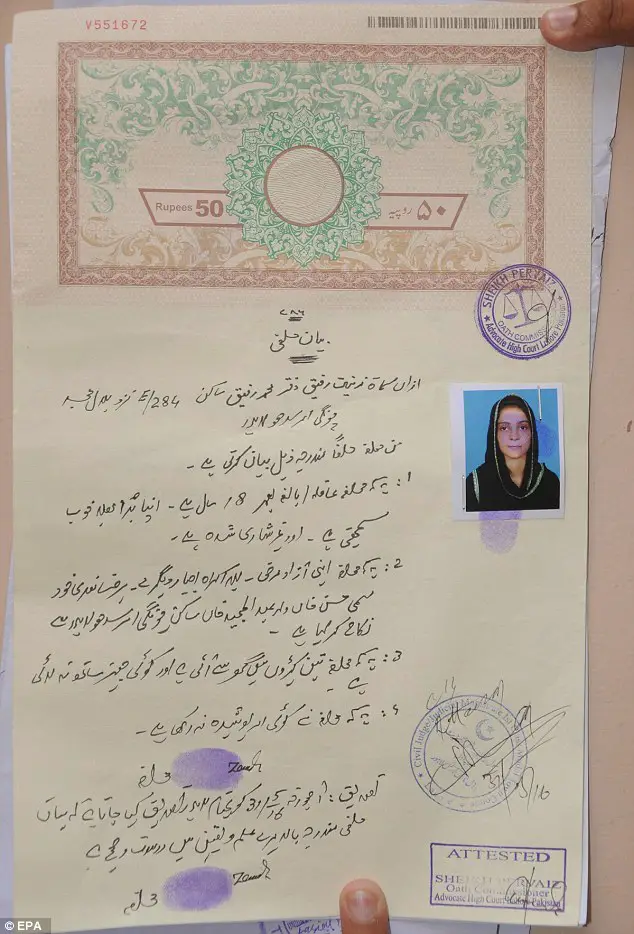 V551672
Rupees 50
۵۰ روپیہ
۷۸۶
بیان حلفی
SHEIKH PERVAIZ
OATH COMMISSIONER
Advocate High Court Lahore Pakistan
ازاں مسماۃ زینت رفیق دختر محمد رفیق ساکن 284/E نزد
چونگی امرسدھو لاہور
من حلفہ حلفاً مندرجہ ذیل بیان کرتی ہے۔
1: یہ کہ حلفہ عاقلہ / بالغ بعمر 18 سال ہے۔ اپنا برا بھلا خوب
سمجھتی ہے۔ اور غیر شادی شدہ ہے۔
2: یہ کہ حلفہ اپنی آزاد مرضی۔ بلا اکراہ اجبار دیگرے۔ برضامندی خود
مسمی حسن خاں ولد عبدالمجید خاں ساکن چونگی امرسدھو لاہور سے
نکاح کر لیا ہے۔
3: یہ کہ حلفہ تین کپڑوں میں گھر سے آئی ہے اور کوئی چیز ساتھ نہ لائی
ہے۔
4: یہ کہ حلفہ نے کوئی امر پوشیدہ نہ رکھا ہے۔
حلفہ
تصدیق: آج مورخہ بمقام لاہور تصدیق کیا جاتا ہے کہ بیان
حلفی مندرجہ بالا میرے علم و یقین میں درست و صحیح ہے
حلفہ
ATTESTED
SHEIKH PERVAIZ
Oath Commissioner
Advocate High Court Lahore Pakistan
© EPA